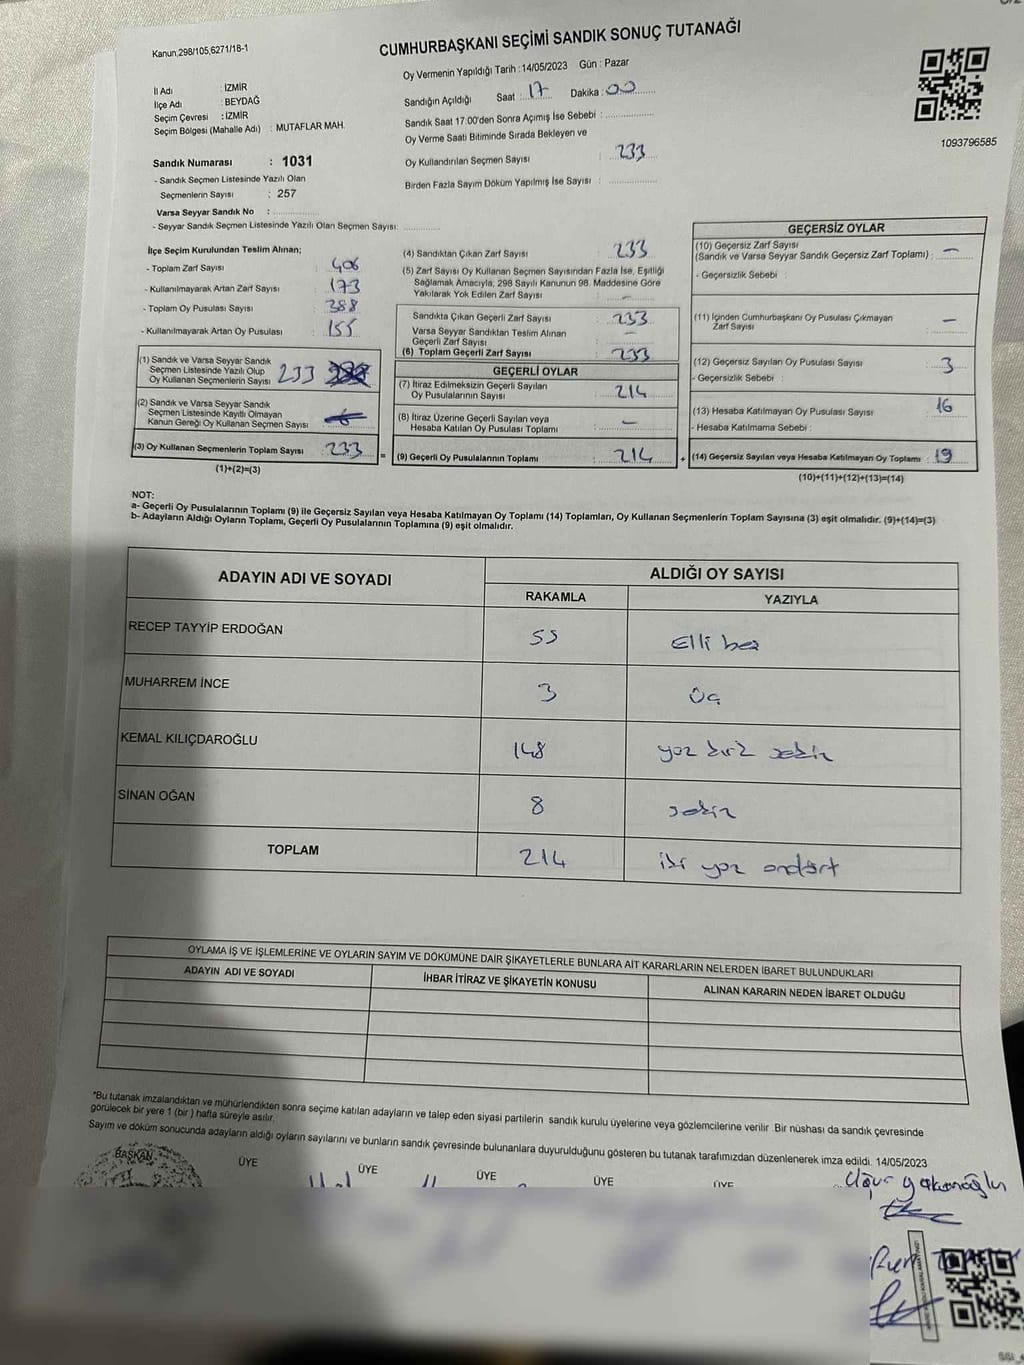 Kanun,298/105,6271/18-1
CUMHURBAŞKANI SEÇİMİ SANDIK SONUÇ TUTANAĞI
Oy Vermenin Yapıldığı Tarih : 14/05/2023 Gün : Pazar
İl Adı : İZMİR
İlçe Adı : BEYDAĞ
Seçim Çevresi : İZMİR
Seçim Bölgesi (Mahalle Adı) : MUTAFLAR MAH.
Sandığın Açıldığı Saat : 17 Dakika : 00
Sandık Saat 17.00'den Sonra Açımış İse Sebebi :
Oy Verme Saati Bitiminde Sırada Bekleyen ve
Oy Kullandırılan Seçmen Sayısı : 233
Birden Fazla Sayım Döküm Yapılmış İse Sayısı :
1093796585
Sandık Numarası : 1031
- Sandık Seçmen Listesinde Yazılı Olan
Seçmenlerin Sayısı : 257
Varsa Seyyar Sandık No :
- Seyyar Sandık Seçmen Listesinde Yazılı Olan Seçmen Sayısı:
İlçe Seçim Kurulundan Teslim Alınan;
- Toplam Zarf Sayısı : 406
- Kullanılmayarak Artan Zarf Sayısı : 173
- Toplam Oy Pusulası Sayısı : 388
- Kullanılmayarak Artan Oy Pusulası : 155
(1) Sandık ve Varsa Seyyar Sandık
Seçmen Listesinde Yazılı Olup
Oy Kullanan Seçmenlerin Sayısı : 233
(2) Sandık ve Varsa Seyyar Sandık
Seçmen Listesinde Kayıtlı Olmayan
Kanun Gereği Oy Kullanan Seçmen Sayısı :
(3) Oy Kullanan Seçmenlerin Toplam Sayısı : 233 =
(1)+(2)=(3)
(4) Sandıktan Çıkan Zarf Sayısı : 233
(5) Zarf Sayısı Oy Kullanan Seçmen Sayısından Fazla İse, Eşitliği
Sağlamak Amacıyla, 298 Sayılı Kanunun 98. Maddesine Göre
Yakılarak Yok Edilen Zarf Sayısı : –
Sandıkta Çıkan Geçerli Zarf Sayısı : 233
Varsa Seyyar Sandıktan Teslim Alınan
Geçerli Zarf Sayısı : –
(6) Toplam Geçerli Zarf Sayısı : 233
GEÇERLİ OYLAR
(7) İtiraz Edilmeksizin Geçerli Sayılan
Oy Pusulalarının Sayısı : 214
(8) İtiraz Üzerine Geçerli Sayılan veya
Hesaba Katılan Oy Pusulası Toplamı : –
(9) Geçerli Oy Pusulalarının Toplamı : 214 +
GEÇERSİZ OYLAR
(10) Geçersiz Zarf Sayısı
(Sandık ve Varsa Seyyar Sandık Geçersiz Zarf Toplamı) : –
- Geçersizlik Sebebi :
(11) İçinden Cumhurbaşkanı Oy Pusulası Çıkmayan
Zarf Sayısı : –
(12) Geçersiz Sayılan Oy Pusulası Sayısı : 3
- Geçersizlik Sebebi :
(13) Hesaba Katılmayan Oy Pusulası Sayısı : 16
- Hesaba Katılmama Sebebi :
(14) Geçersiz Sayılan veya Hesaba Katılmayan Oy Toplamı : 19
(10)+(11)+(12)+(13)=(14)
NOT:
a- Geçerli Oy Pusulalarının Toplamı (9) ile Geçersiz Sayılan veya Hesaba Katılmayan Oy Toplamı (14) Toplamları, Oy Kullanan Seçmenlerin Toplam Sayısına (3) eşit olmalıdır. (9)+(14)=(3)
b- Adayların Aldığı Oyların Toplamı, Geçerli Oy Pusulalarının Toplamına (9) eşit olmalıdır.
ADAYIN ADI VE SOYADI ALDIĞI OY SAYISI
RAKAMLA YAZIYLA
RECEP TAYYİP ERDOĞAN 55 Elli beş
MUHARREM İNCE 3 üç
KEMAL KILIÇDAROĞLU 148 yüz kırk sekiz
SİNAN OĞAN 8 sekiz
TOPLAM 214 iki yüz ondört
OYLAMA İŞ VE İŞLEMLERİNE VE OYLARIN SAYIM VE DÖKÜMÜNE DAİR ŞİKAYETLERLE BUNLARA AİT KARARLARIN NELERDEN İBARET BULUNDUKLARI
ADAYIN ADI VE SOYADI İHBAR İTİRAZ VE ŞİKAYETİN KONUSU ALINAN KARARIN NEDEN İBARET OLDUĞU
*Bu tutanak imzalandıktan ve mühürlendikten sonra seçime katılan adayların ve talep eden siyasi partilerin sandık kurulu üyelerine veya gözlemcilerine verilir. Bir nüshası da sandık çevresinde
görülecek bir yere 1 (bir) hafta süreyle asılır.
Sayım ve döküm sonucunda adayların aldığı oyların sayılarını ve bunların sandık çevresinde bulunanlara duyurulduğunu gösteren bu tutanak tarafımızdan düzenlenerek imza edildi. 14/05/2023
BAŞKAN ÜYE ÜYE ÜYE ÜYE ÜYE